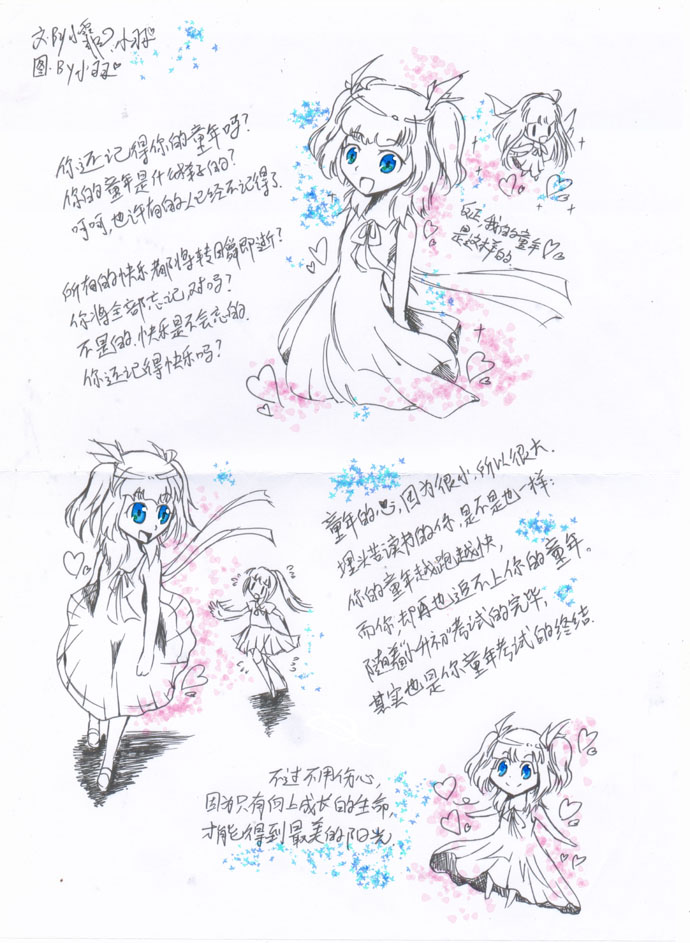 文.By小霜、小羽
图.By小羽
你还记得你的童年吗?
你的童年是什么样子的?
呵呵,也许有的人已经不记得了.
所有的快乐都将转瞬即逝?
你将全部忘记,对吗?
不是的.快乐是不会忘的.
你还记得快乐吗?
我的童年
是这样的
童年的心,因为很小,所以很大.
埋头苦读书的你,是不是也一样:
你的童年越跑越快,
而你,却再也追不上你的童年。
随着小升初考试的完毕,
其实也是你童年考试的终结.
不过不用伤心,
因为只有向上成长的生命,
才能得到最美的阳光